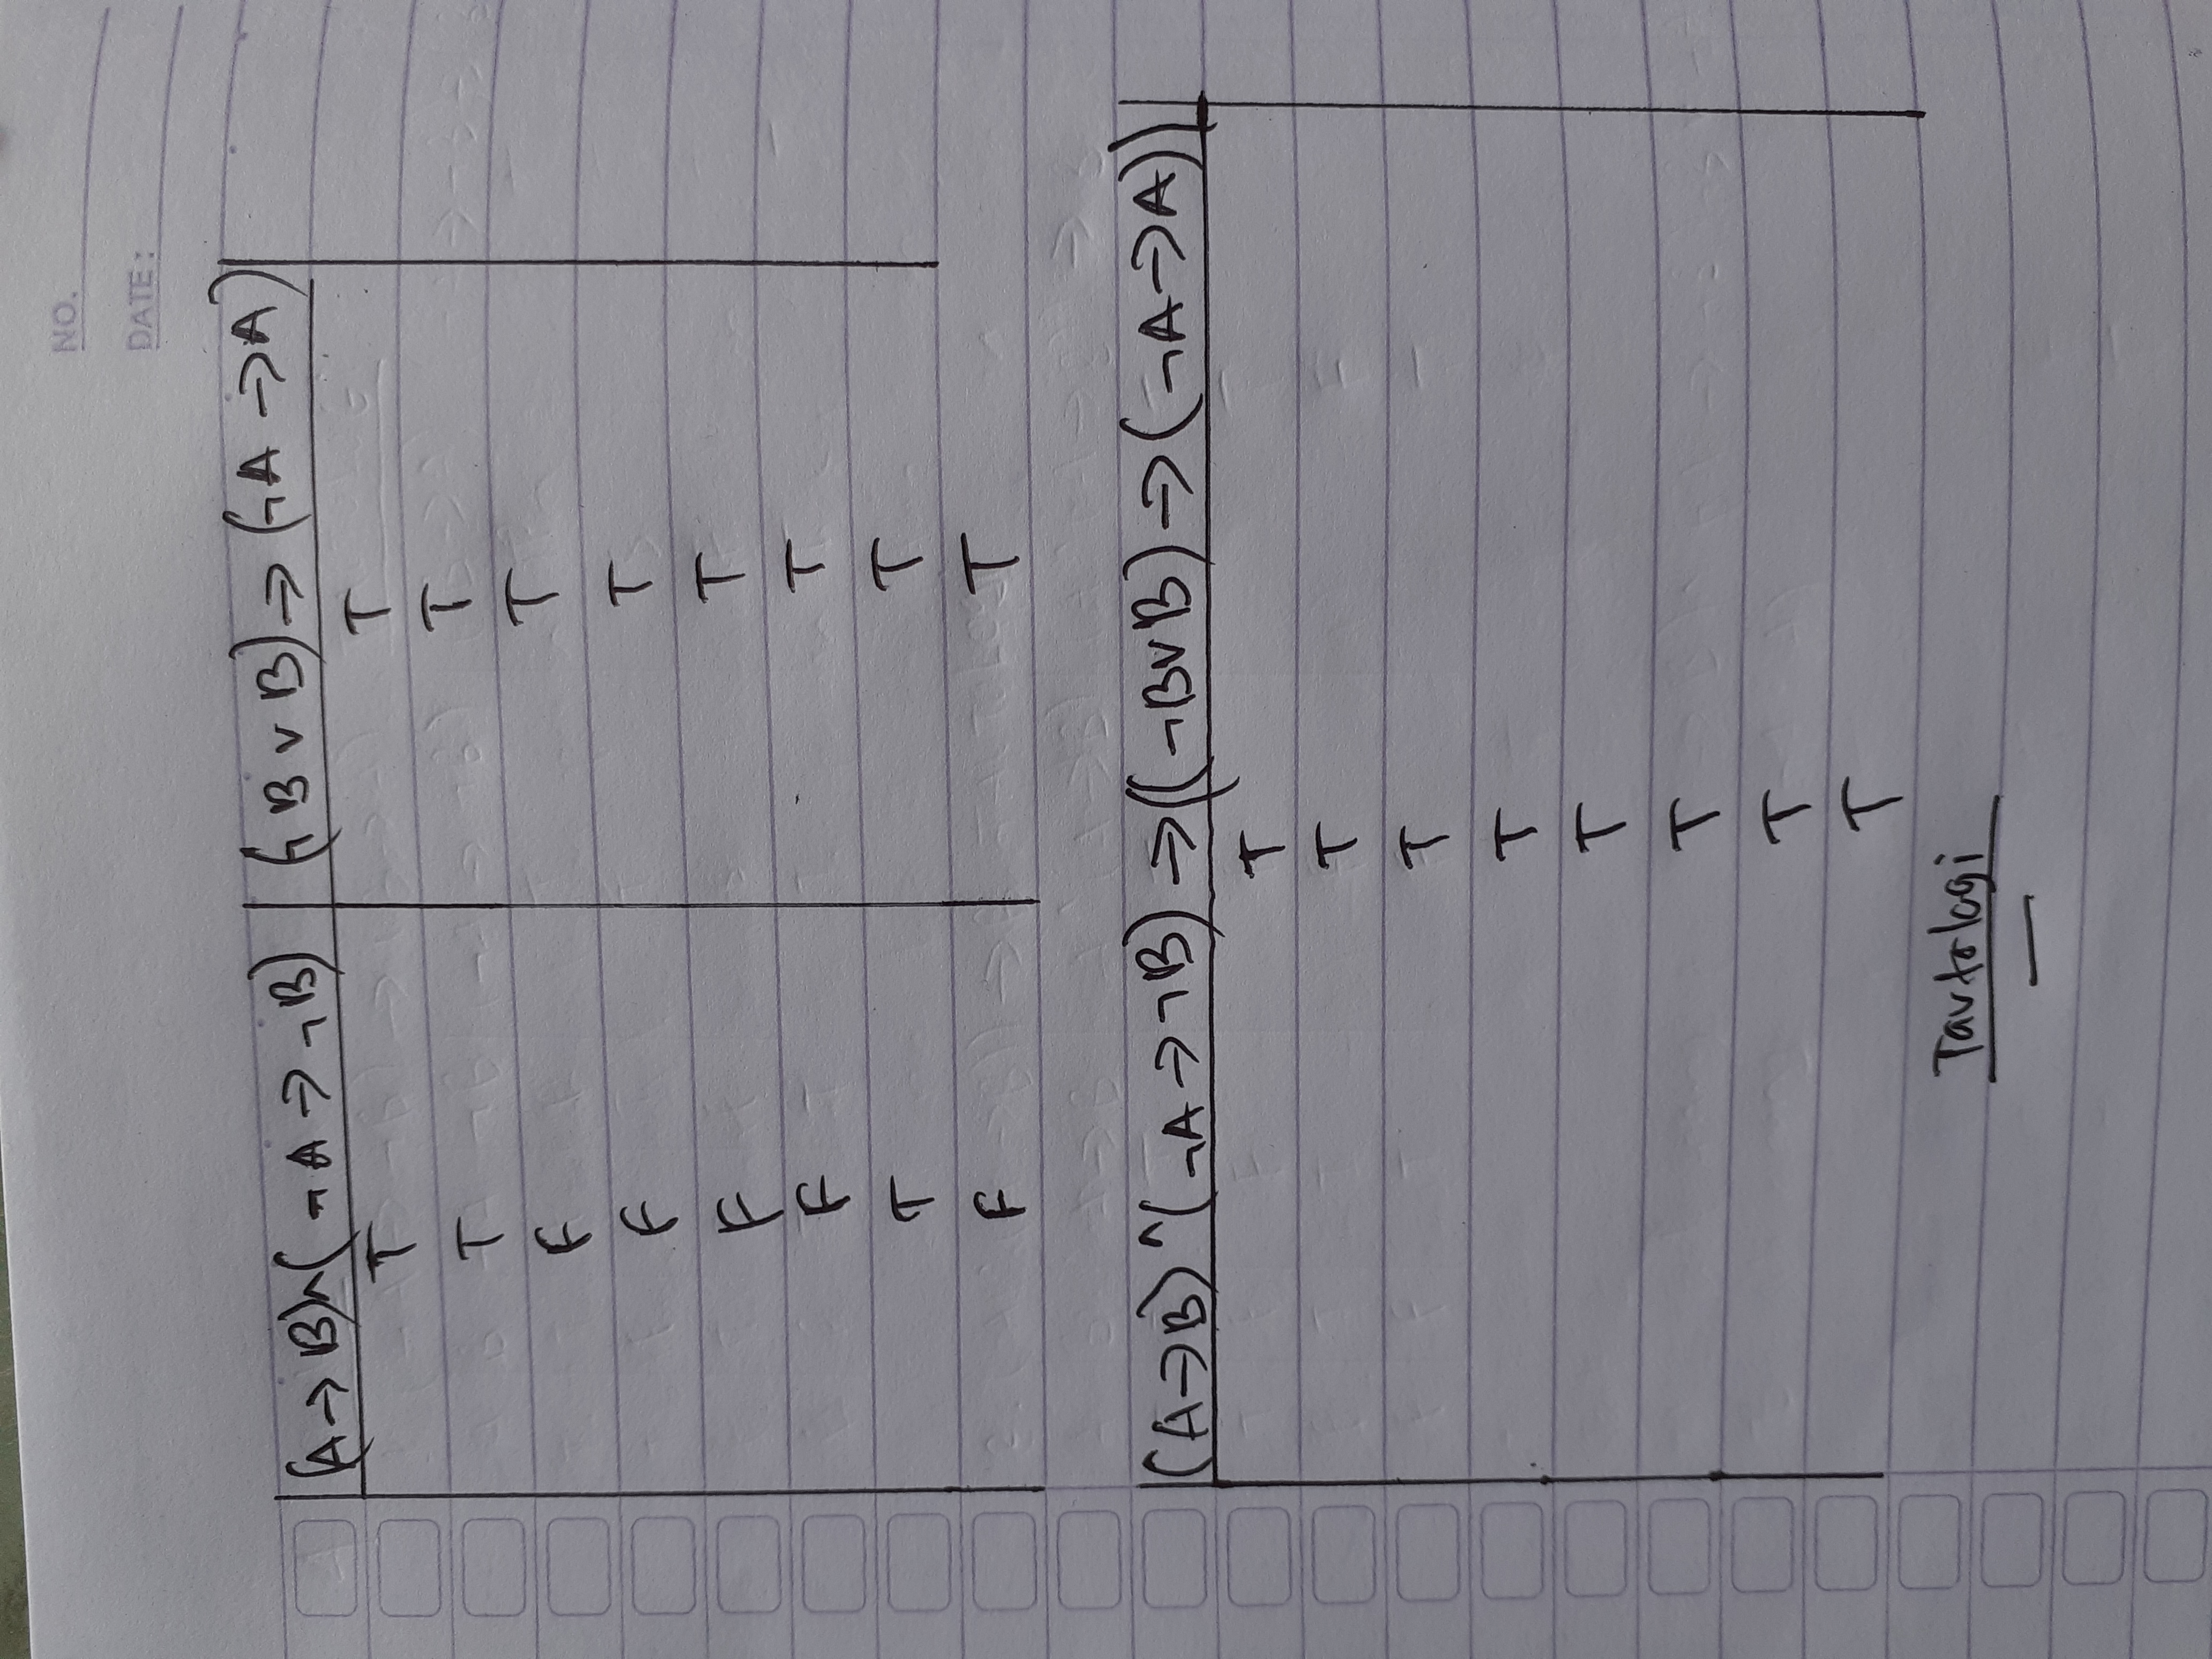 NO.
DATE:
(A→B)^(¬A→¬B) (¬B∨B)→(¬A→A)
T T
T T
F T
F T
F T
F T
T T
F T
(A→B)^(¬A→¬B)→((¬B∨B)→(¬A→A))
T
T
T
T
T
T
T
T
Tautologi